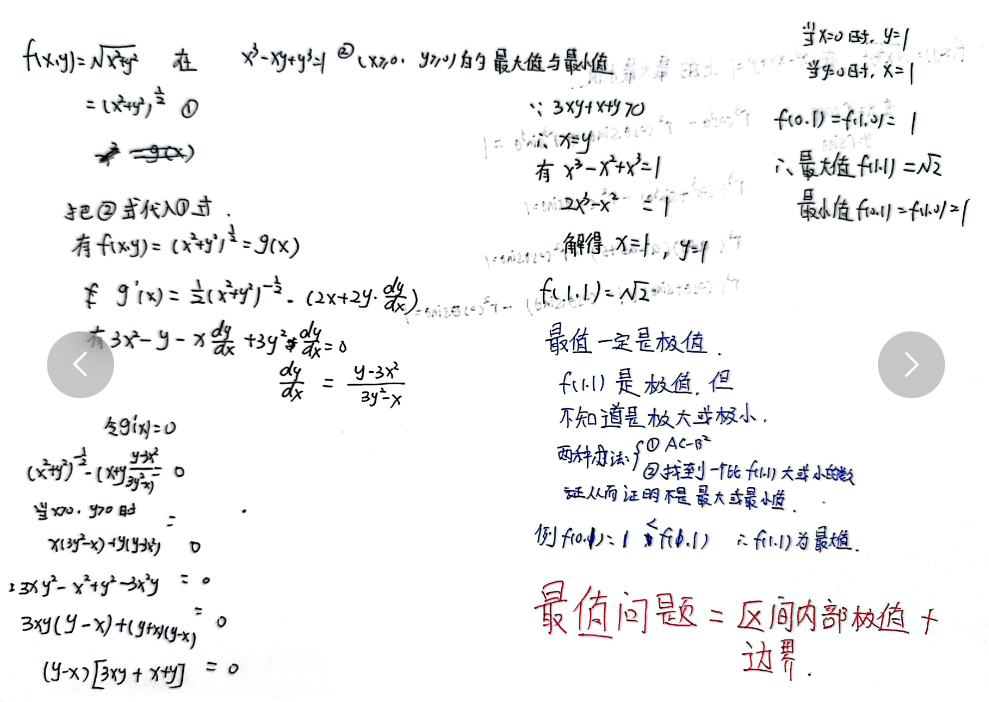 f(x,y)=√x²+y² 在 x³-xy+y³=1 ② (x≥0, y≥0)的最大值与最小值
=(x²+y²)^½ ①
把②式代入①式.
有f(x,y)=(x²+y²)^½=g(x)
g'(x)=½(x²+y²)^-½·(2x+2y·dy/dx)
有3x²-y-x dy/dx+3y² dy/dx=0
dy/dx = y-3x²/3y²-x
令g'(x)=0
(x²+y²)^-½·(x+y y-3x²/3y²-x) = 0
当x>0,y>0时
x(3y²-x)+y(y-3x²) = 0
3xy²-x²+y²-3x²y = 0
3xy(y-x)+(y+x)(y-x) = 0
(y-x)[3xy+x+y] = 0
∵3xy+x+y>0
∴x=y
有x³-x²+x³=1
2x³-x² =1
解得x=1,y=1
f(1,1)=√2
最值一定是极值.
f(1,1)是极值,但
不知道是极大或极小.
两种办法:{①AC-B²
②找到一个比f(1,1)大或小的数
从而证明不是最大或最小值.
∴f(1,1)为最大值.
当x=0时,y=1
当y=0时,x=1
f(0,1)=f(1,0)=1
∴最大值f(1,1)=√2
最小值f(0,1)=f(1,0)=1
最值问题=区间内部极值+
边界.